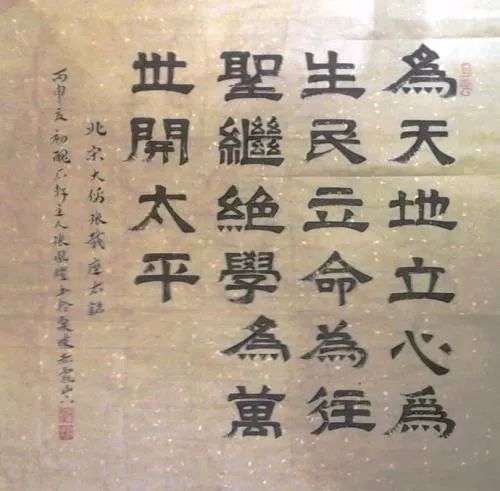 為天地立心為
生民立命為往
聖繼絕學為萬
世開太平
北宋大儒張載座右銘
丙申夏初醜不拌主人張